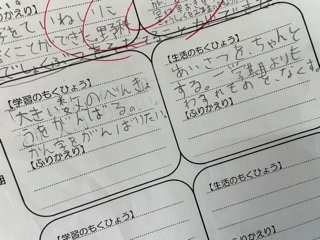 字をていねいに
書くことができた
【ふりかえり】
【学習のもくひょう】
大きい数のべんきょ
うをがんばる。
かん字をがんばりたい。
【ふりかえり】
【生活のもくひょう】
あいさつをちゃんと
する。一学期よりも
わすれものをなくす。
【ふりかえり】
【学習のもくひょう】
【生活のもくひょう】
【ふりかえり】
期